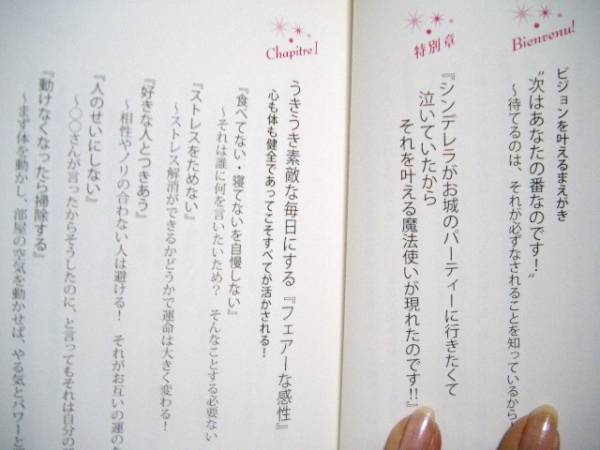 Bienvenu!
ビジョンを叶えるまえがき
“次はあなたの番なのです！”
～待てるのは、それが必ずなされることを知っているから
特別章
『シンデレラがお城のパーティーに行きたくて
泣いていたから
それを叶える魔法使いが現れたのです!!』
Chapitre1
うきうき素敵な毎日にする『フェアーな感性』
心も体も健全であってこそすべてが活かされる！
『食べてない・寝てないを自慢しない』
～それは誰に何を言いたいため？　そんなことする必要ない
『ストレスをためない』
～ストレス解消ができるかどうかで運命は大きく変わる！
『好きな人とつきあう』
～相性やノリの合わない人は避ける！　それがお互いの運の
『人のせいにしない』
～〇〇さんが言ったからそうしたのに、と言ってもそれは自分の
『動けなくなったら掃除する』
～まず体を動かし、部屋の空気を動かせば、やる気とパワーと